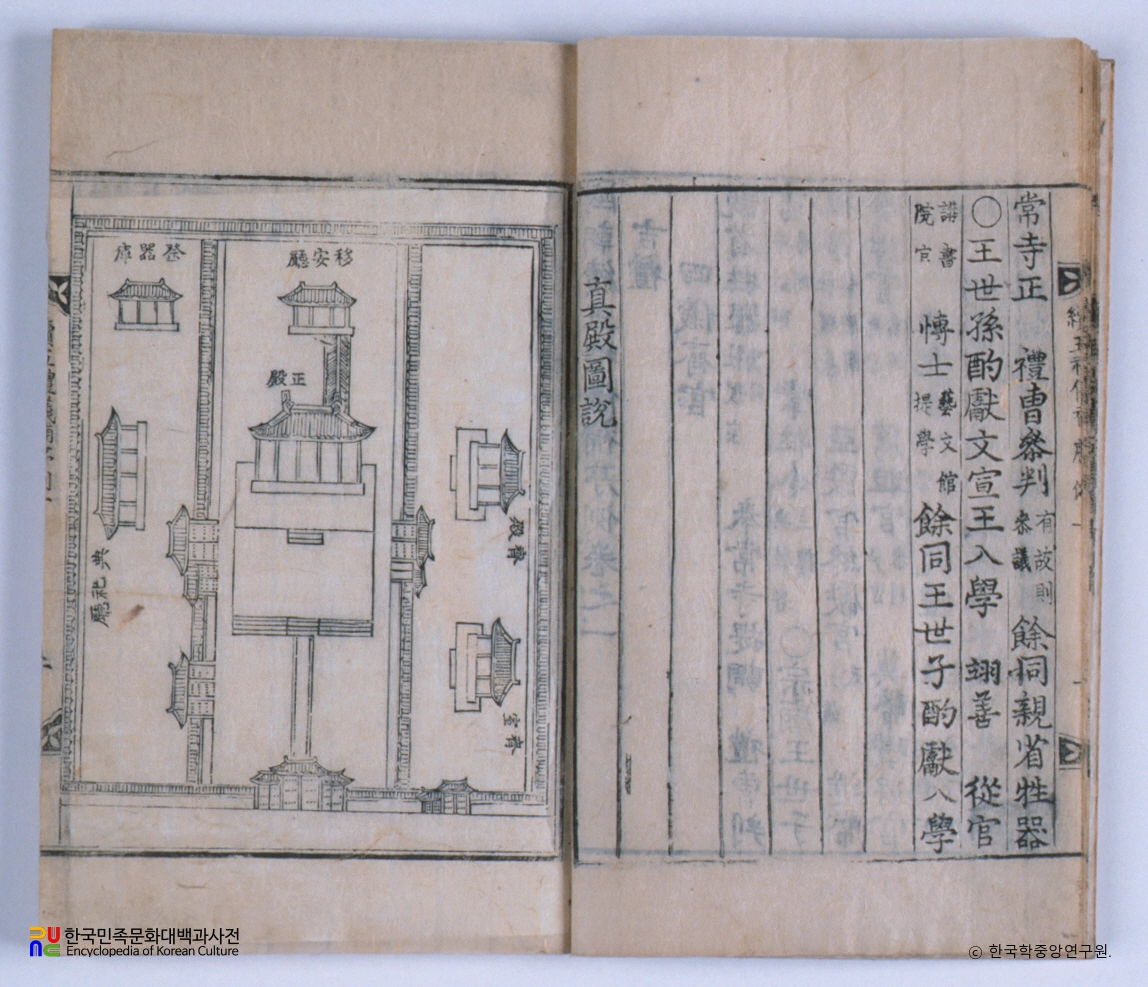 常寺正 禮曹叅判 有故則叅議 餘同親省牲器
○王世孫酌獻文宣王入學 翊善 從官
講書院官 愽士 藝文館提學 餘同王世子酌獻入學
真殿圖說
移安廳
祭器庫
正殿
齋殿
齋室
典祀廳
한국민족문화대백과사전
Encyclopedia of Korean Culture
© 한국학중앙연구원.